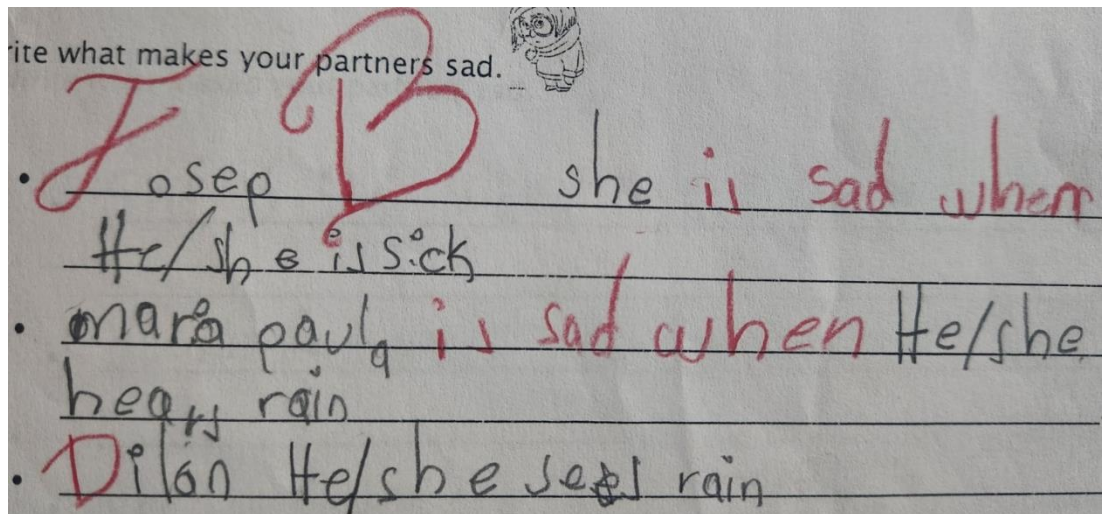 rite what makes your partners sad.
• Josep B she is sad when
He/she is sick
• mara paula is sad when He/she
hears rain
• Dilan He/she sees rain